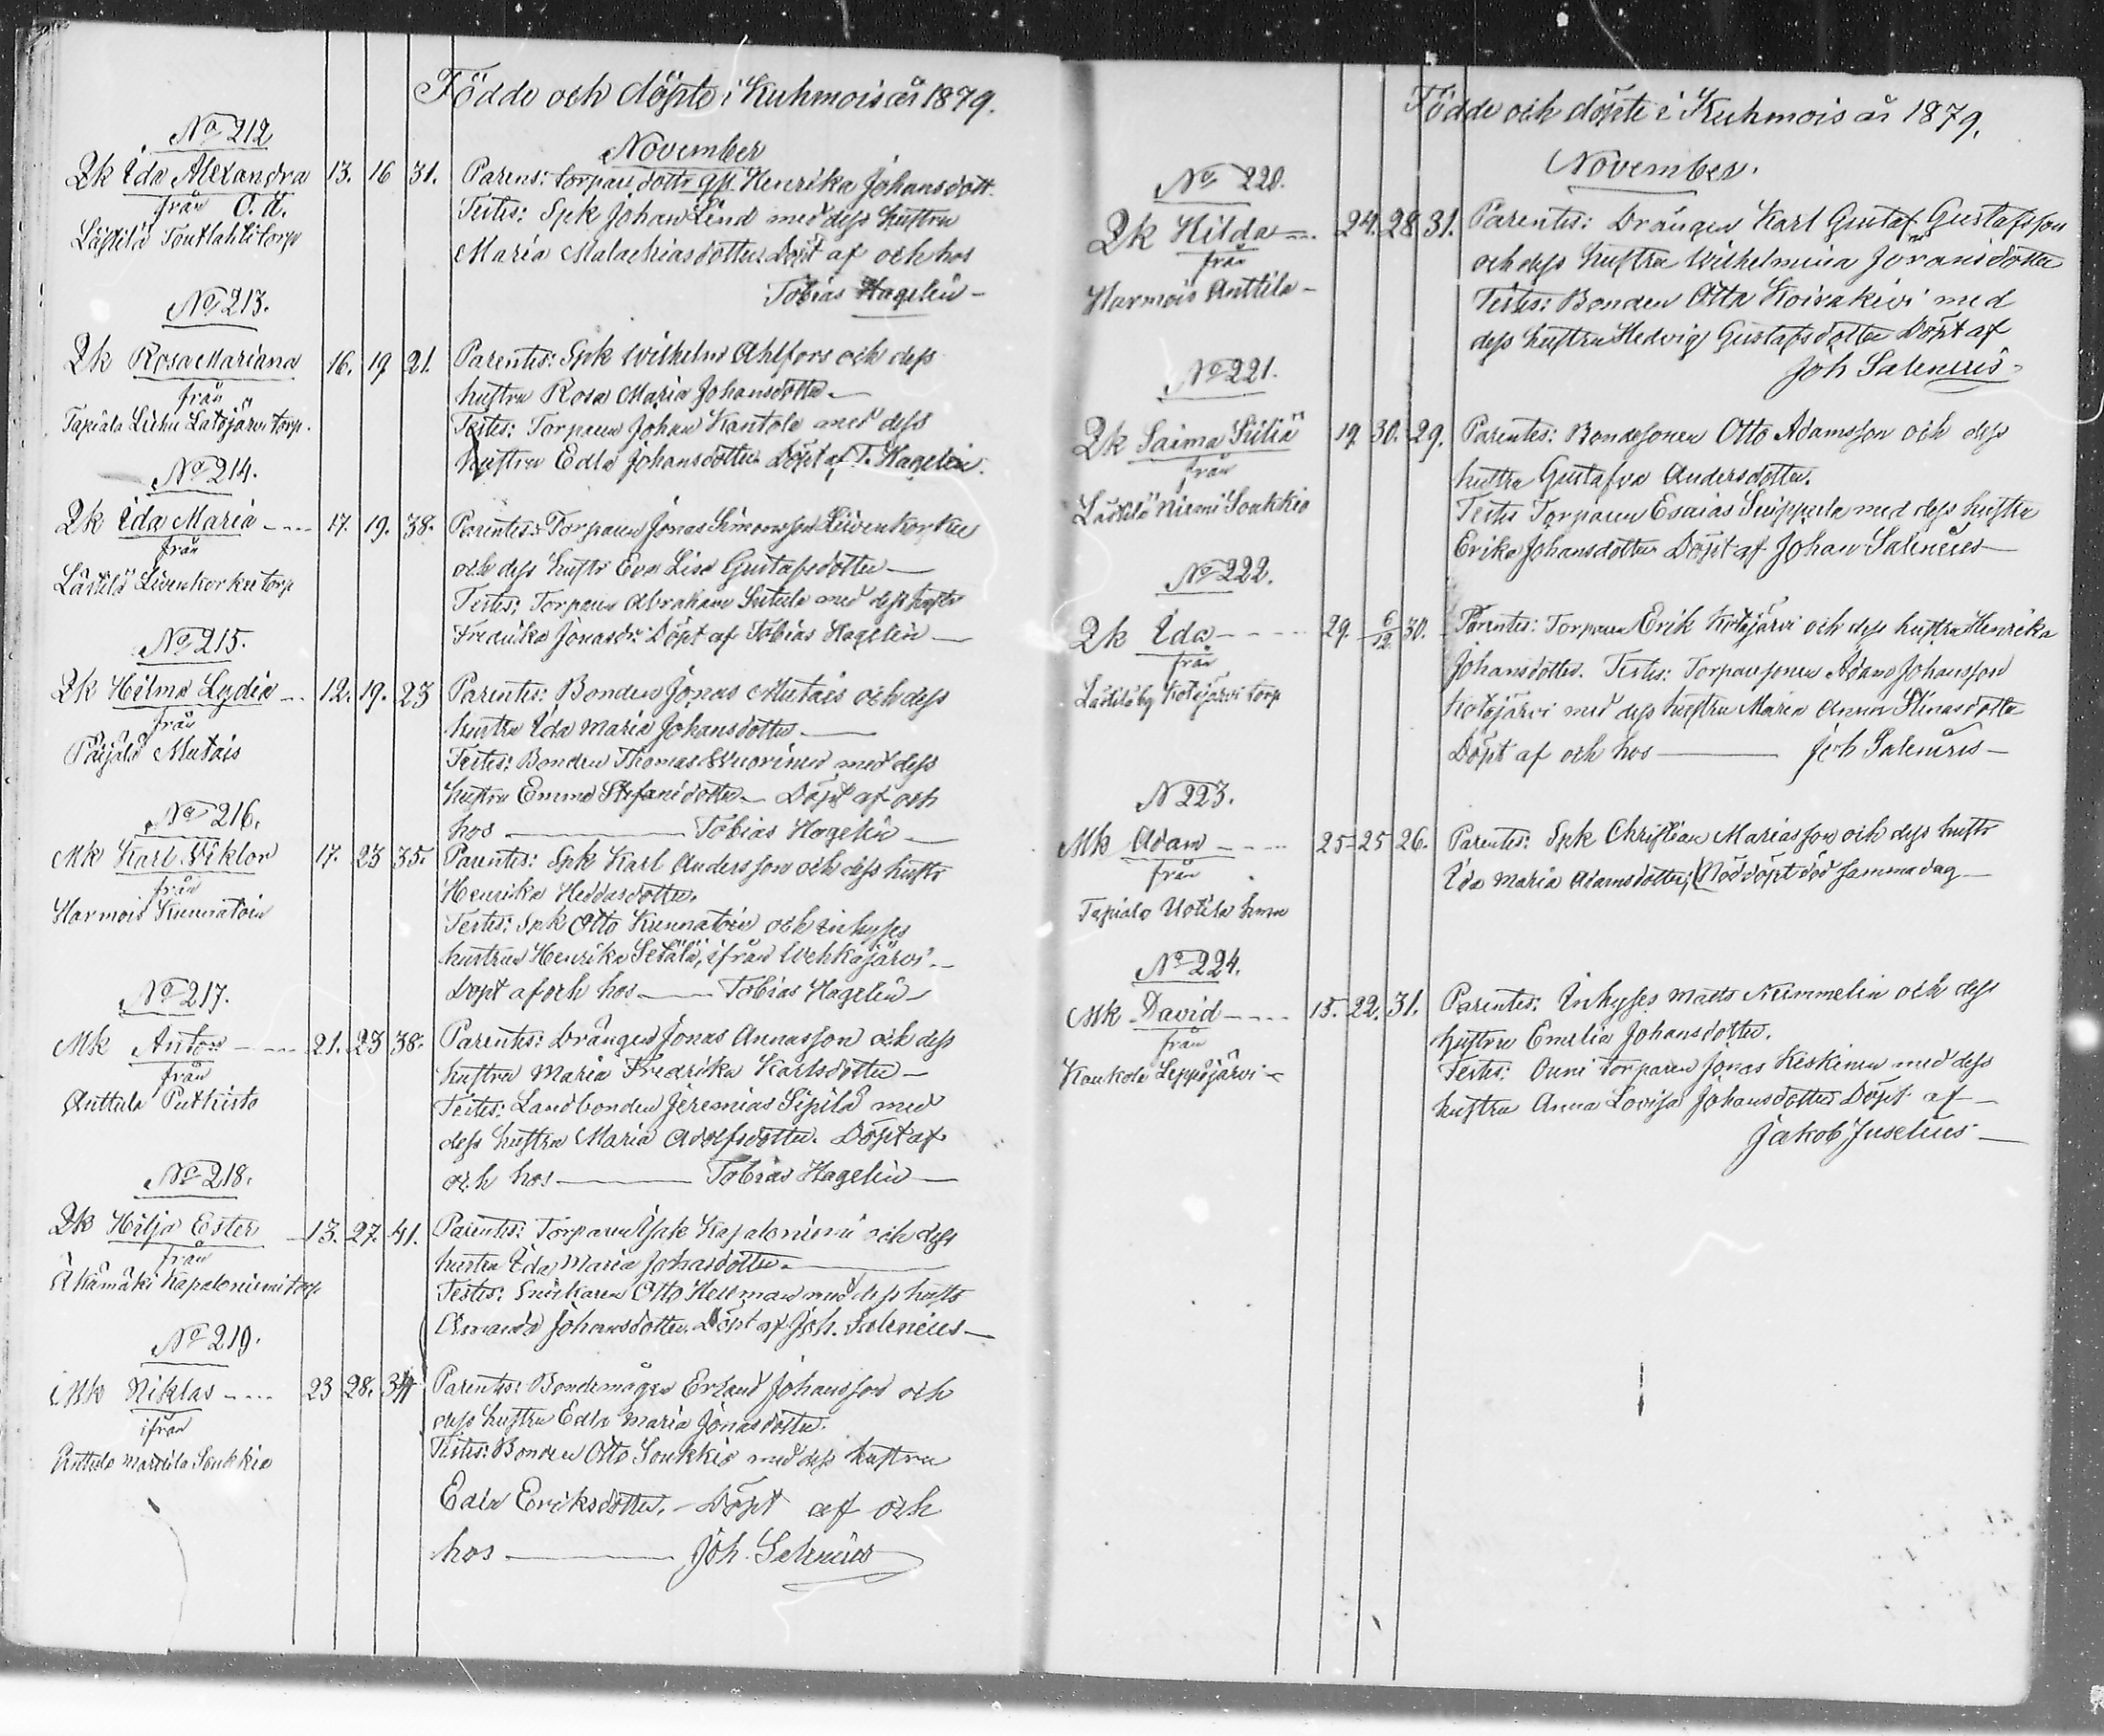 Födde och döpte i Kuhmois år 1879.
November
No 212
Qk Ida Alexandra 13. 16 31. Parens: Torpare dottr Henrika Johansdott.
från O. Ä. Testes: Spk Johan Lind med dess hustru
Lästilä torp Maria Malachiasdotter Döpt af och hos
Tobias Hagelin
No 213.
Qk Rosa Mariana 16. 19 21. Parentes: Spk Wilhelm Ahlfors och dess
från hustru Rosa Maria Johansdotter
Tapiala Latojärvi torp. Testes: Torparen Johan Kantola med dess
hustru Edla Johansdotter Döpt af T. Hagelin.
No 214.
Qk Ida Maria 17. 19. 38. Parentes: Torparen Jonas Simonsson Liivenkorkee
från och dess hustr Eva Lisa Gustafsdotter
Lästilä torp Testes: Torparen Abraham med dess hustr
Fredrika Jonasdr. Döpt af Tobias Hagelin
No 215.
Qk Hilma Lydia 12. 19. 23 Parentes: Bonden Jonas Mutais och dess
från hustru Ida Maria Johansdotter
Päijälä Mutais Testes: Bonden Thomas Wuorinen med dess
hustru Emma Stefansdotter Döpt af och
hos Tobias Hagelin
No 216.
Mk Karl Viktor 17. 23 35. Parentes: Spk Karl Andersson och dess hustr
från Henrika Heddasdotter.
Harmois Kunnatoin Testes: Spk Otto Kunnatoin och inhyses
hustrun Henrika Setälä, ifrån Wehkajärvi
Döpt af och hos Tobias Hagelin
No 217.
Mk Anton 21. 23 38. Parentes: Drängen Jonas Annasson och dess
från hustru Maria Fredrika Karlsdotter
Anttula Putkisto Testes: Landbonden Jeremias Sipilä med
dess hustru Maria Adolfsdotter. Döpt af
och hos Tobias Hagelin
No 218.
Qk Hilja Ester 13. 27. 41. Parentes: Torparen Isak Kapaloniemi och dess
från hustru Ida Maria Johansdotter
Kapaloniemi torp Testes: Snickaren Otto Hellman med dess hustr
Amanda Johansdotter. Döpt af Joh. Salenius
No 219.
Mk Niklas 23 28. 34 Parentes: Bondemågen Erland Johansson och
ifrån dess hustru Edla Maria Jonasdotter.
Anttula Mattila Soukkio Testes: Bonden Otto Soukkio med dess hustru
Edla Eriksdotter. Döpt af och
hos Joh. Salenius
Födde och döpte i Kuhmois år 1879.
November.
No 220.
Qk Hilda 24. 28 31. Parentes: Drängen Karl Gustaf Gustafsson
från och dess hustru Wilhelmina Göransdotter
Harmois Anttila Testes: Bonden Otto Koivakivi med
dess hustru Hedvig Gustafsdotter Döpt af
Joh Salenius
No 221.
Qk Saima 19. 30. 29. Parentes: Bondesonen Otto Adamsson och dess
från hustru Gustafva Andersdotter.
Lästilä Niemi Soukkio Testes Torparen Esaias med dess hustru
Erika Johansdotter Döpt af Johan Salenius
No 222.
Qk Ida 29. 6/12 30. Parentes: Torparen Erik Kotojärvi och dess hustru Henrika
från Johansdotter. Testes: Torparesonen Adam Johansson
Lästilä by Kotojärvi torp Kotojärvi med dess hustru Maria Anna Stinasdotter
Döpt af och hos Joh Salenius
N 223.
Mk Adam 25 25 26. Parentes: Spk Christian Mariasson och dess hustr
från Ida Maria Adamsdotter, Nöddöpt död samma dag
Tapiala Uotila
No 224.
Mk David 15. 22. 31. Parentes: Inhyses Matts Nummelin och dess
från hustru Emelia Johansdotter.
Kaukola Leppäjärvi Testes: Onni torparen Jonas Keskinen med dess
hustru Anna Lovisa Johansdotter Döpt af
Jakob Juselius